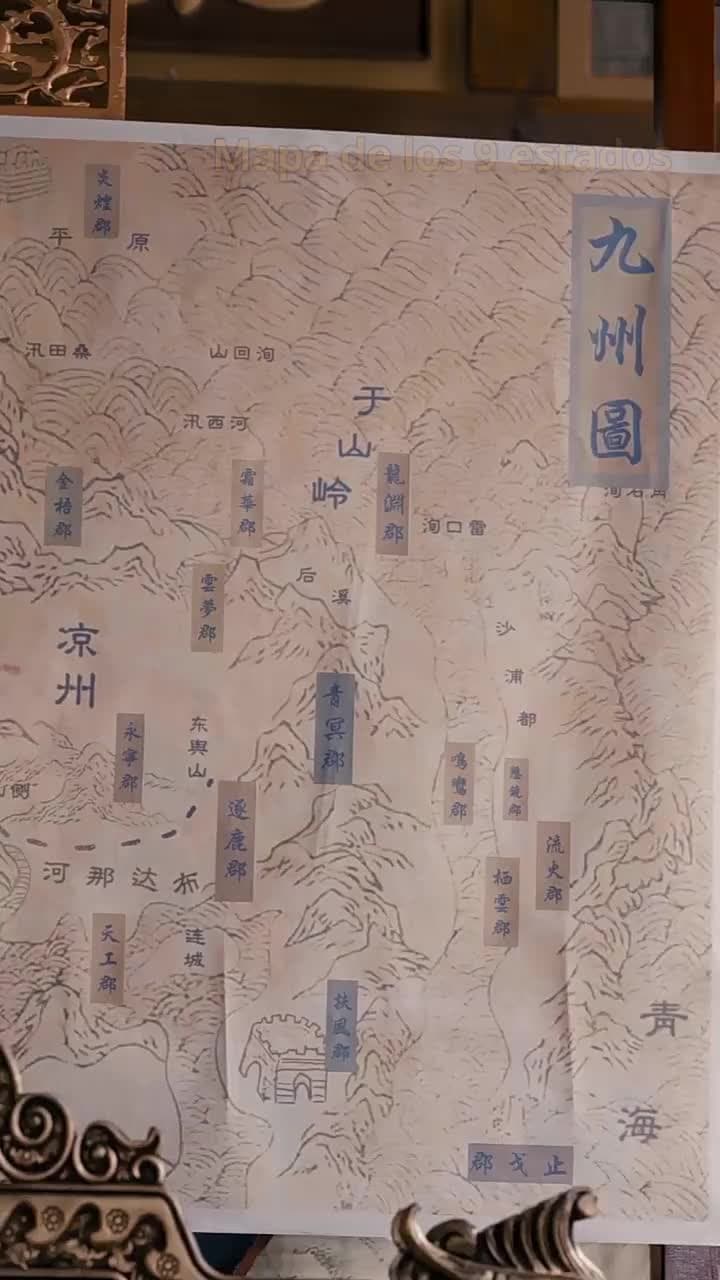 Mapa de los 9 estados
九州圖
炎煌郡
平原
汛田桑
山回洵
汛西河
于山岭
金梧郡
霜華郡
龍淵郡
洵口雷
雲夢郡
后溪
凉州
沙浦都
青冥郡
永寧郡
东舆山
逐鹿郡
鳴鸞郡
流火郡
栖雲郡
河那达布
天工郡
连城
扶風郡
青海
郡戈止